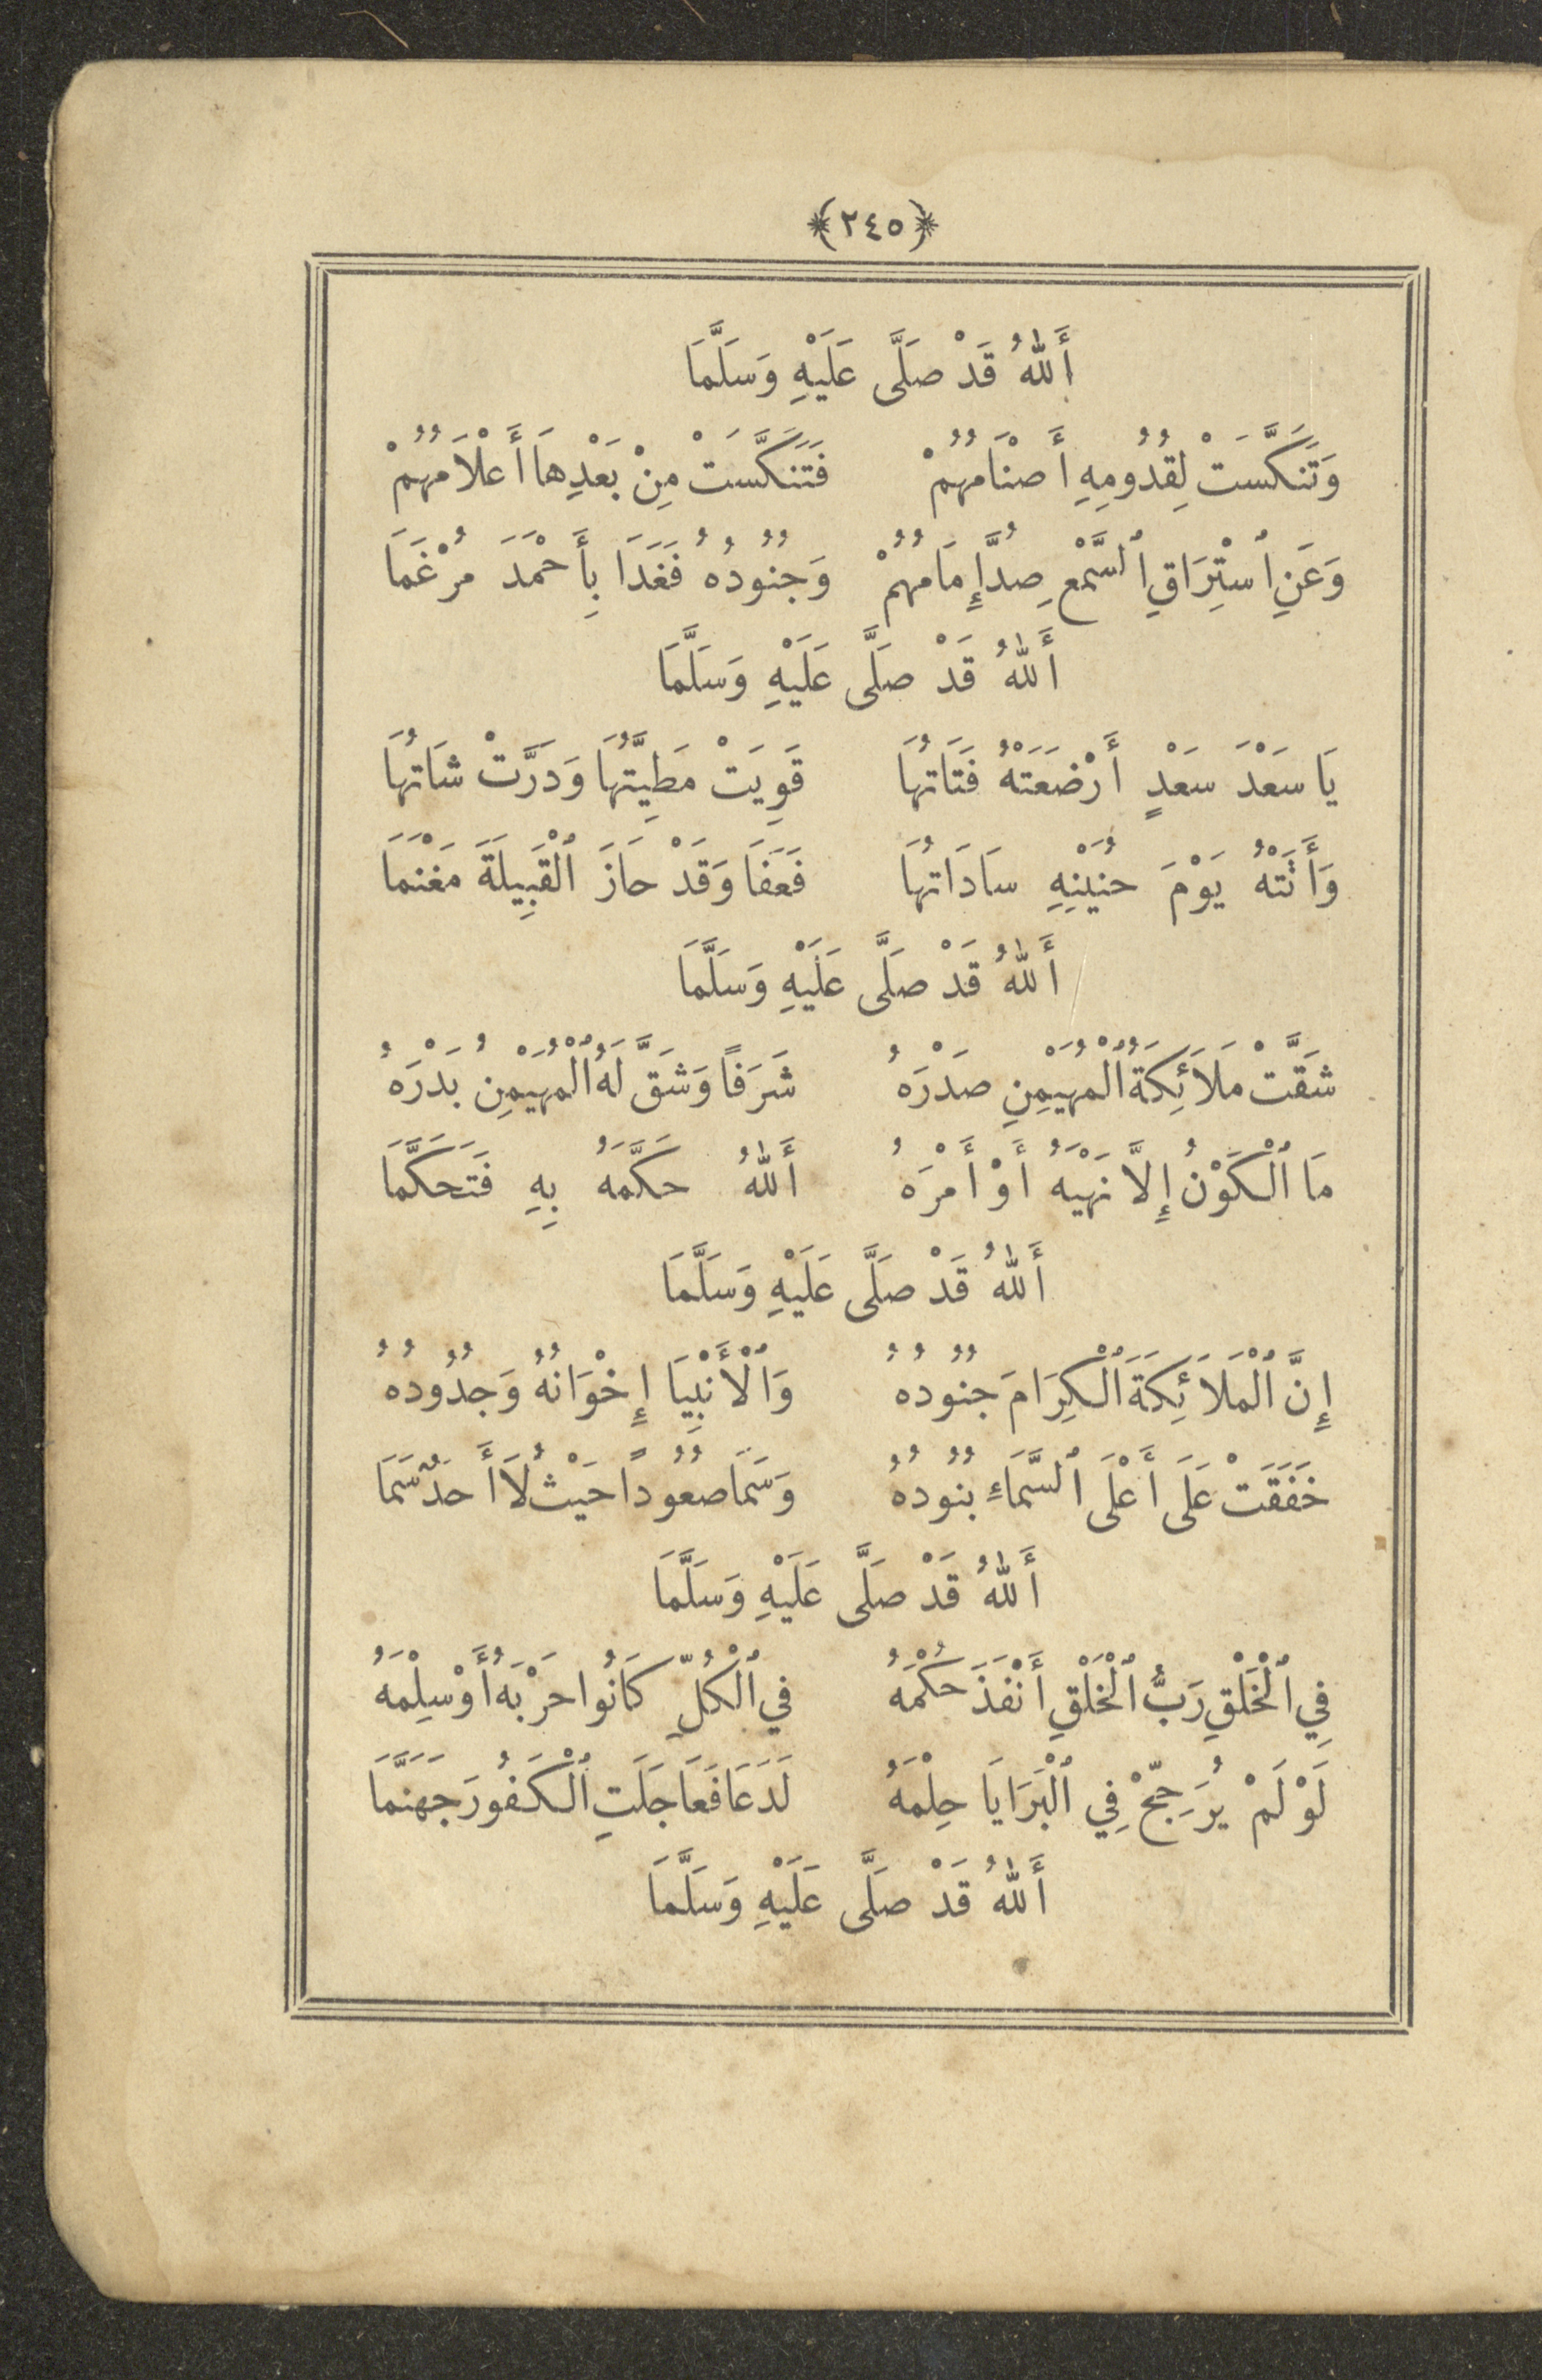 ﴿٢٤٥﴾
أَللهُ قَدْ صَلَّى عَلَيْهِ وَسَلَّمَا
وَتَنَكَّسَتْ لِقُدُومِهِ أَصْنَامُهُمْ فَتَنَكَّسَتْ مِنْ بَعْدِهَا أَعْلَامُهُمْ
وَعَنِ ٱسْتِرَاقِ ٱلسَّمْعِ صُدَّ إِمَامُهُمْ وَجُنُودُهُ فَغَدَا بِأَحْمَدَ مُرْغَمَا
أَللهُ قَدْ صَلَّى عَلَيْهِ وَسَلَّمَا
يَا سَعْدَ سَعْدٍ أَرْضَعَتْهُ فَتَاتُهَا قَوِيَتْ مَطِيَّتُهَا وَدَرَّتْ شَاتُهَا
وَأَتَتْهُ يَوْمَ حُنَيْنِهِ سَادَاتُهَا فَعَفَا وَقَدْ حَازَ ٱلْقَبِيلَةَ مَغْنَمَا
أَللهُ قَدْ صَلَّى عَلَيْهِ وَسَلَّمَا
شَقَّتْ مَلَائِكَةُ ٱلْمُهَيْمِنِ صَدْرَهُ شَرَفًا وَشَقَّ لَهُ ٱلْمُهَيْمِنُ بَدْرَهُ
مَا ٱلْكَوْنُ إِلَّا نَهْيَهُ أَوْ أَمْرَهُ أَللهُ حَكَّمَهُ بِهِ فَتَحَكَّمَا
أَللهُ قَدْ صَلَّى عَلَيْهِ وَسَلَّمَا
إِنَّ ٱلْمَلَائِكَةَ ٱلْكِرَامَ جُنُودُهُ وَٱلْأَنْبِيَا إِخْوَانُهُ وَجُدُودُهُ
خَفَقَتْ عَلَى أَعْلَى ٱلسَّمَاءِ بُنُودُهُ وَسَمَا صُعُودًا حَيْثُ لَا أَحَدٌ سَمَا
أَللهُ قَدْ صَلَّى عَلَيْهِ وَسَلَّمَا
فِي ٱلْخَلْقِ رَبُّ ٱلْخَلْقِ أَنْفَذَ حُكْمَهُ في ٱلْكُلِّ كَانُوا حَرْبَهُ أَوْ سِلْمَهُ
لَوْ لَمْ يُرَجِّحْ فِي ٱلْبَرَايَا حِلْمَهُ لَدَعَا فَعَاجَلَتِ ٱلْكَفُورَ جَهَنَّمَا
أَللهُ قَدْ صَلَّى عَلَيْهِ وَسَلَّمَا